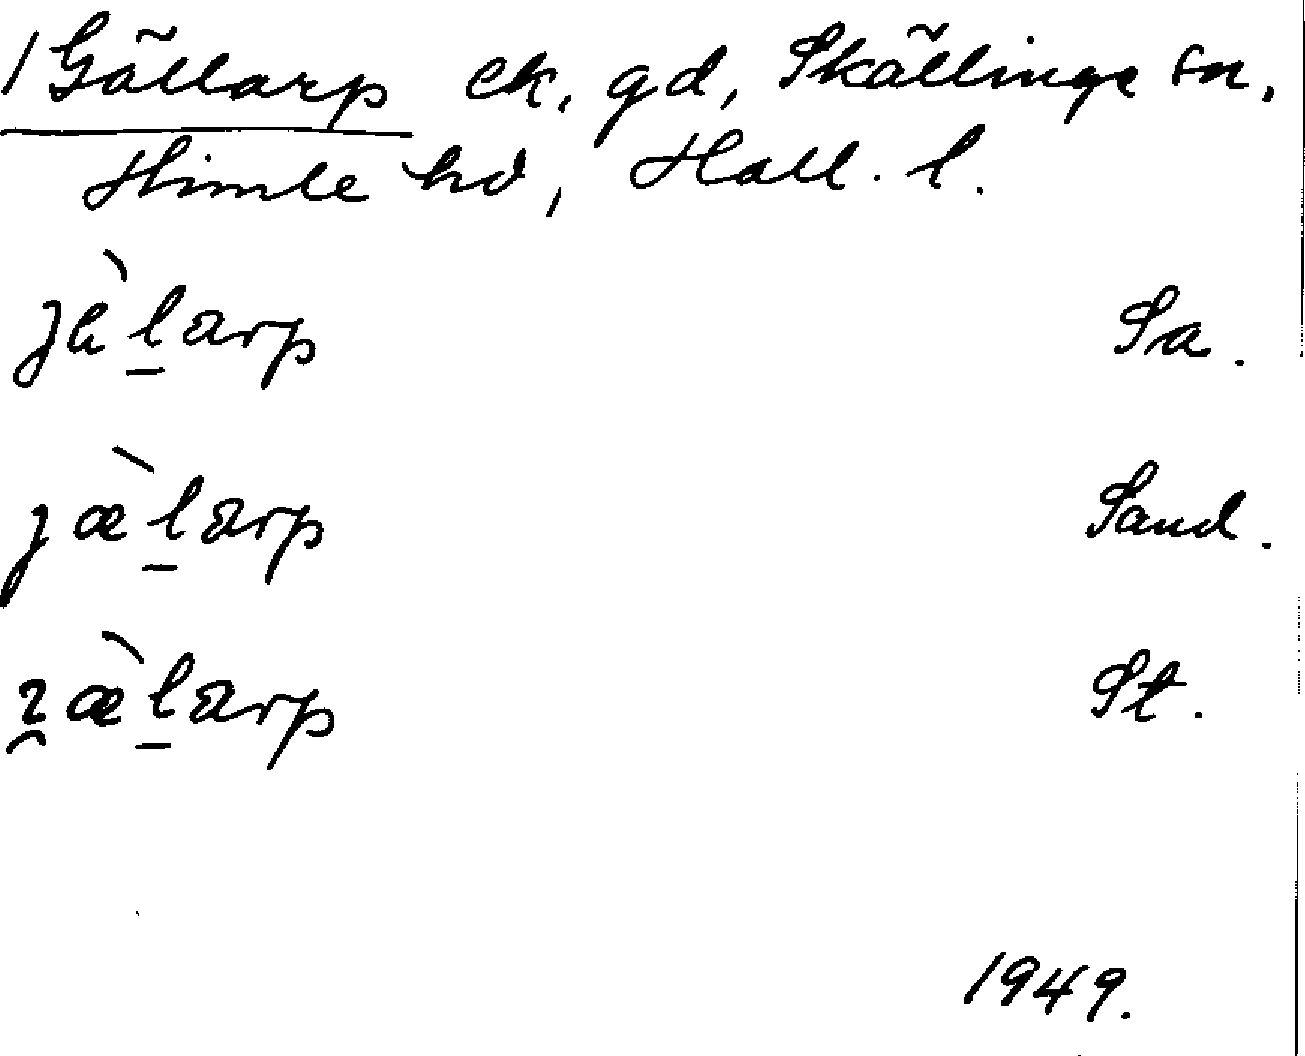 /Gällarp ek. gd, Skällinge sn,
Himle hd, Hall. l.
jä̀l̠arp Sa.
jæ̀l̠arp Sand.
ʓæ̀l̠arp St.
1949.